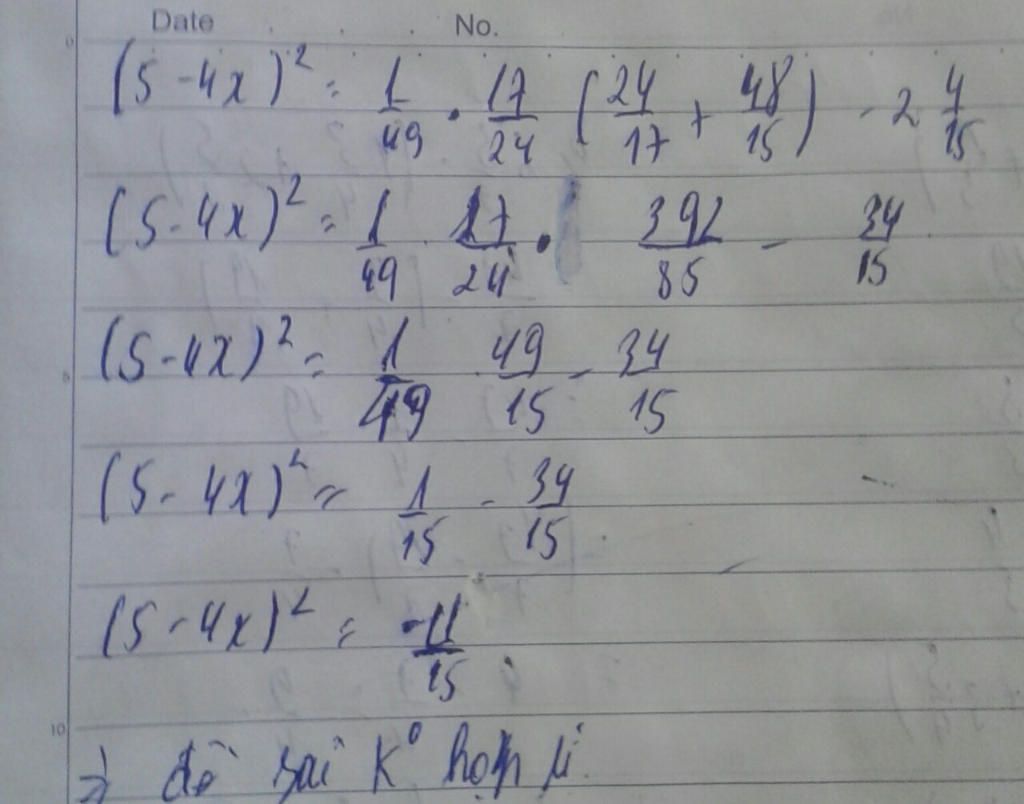 Date No.
(5 - 4x)² = 1/49 . 17/24 (24/17 + 48/15) - 2 4/15
(5 - 4x)² = 1/49 . 17/24 . 392/85 - 34/15
(5 - 4x)² = 1/49 . 49/15 - 34/15
(5 - 4x)² = 1/15 - 34/15
(5 - 4x)² = -11/15
10
=> đề sai k° hợp lí.